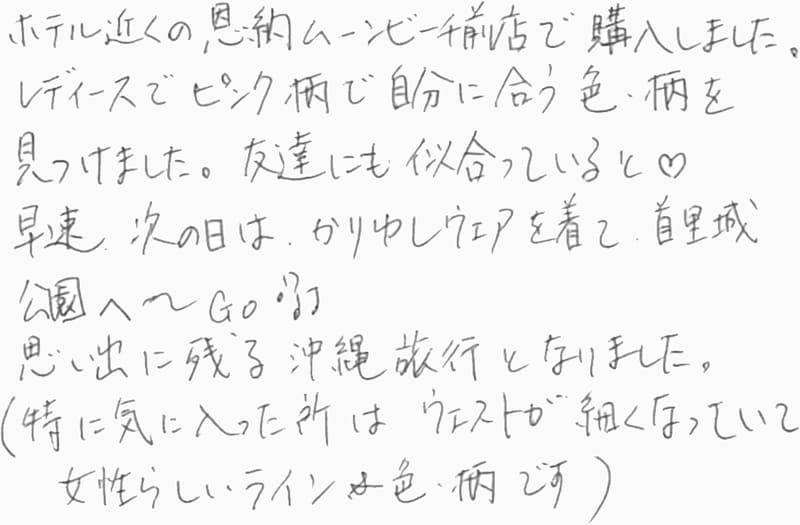 ホテル近くの恩納ムーンビーチ前店で購入しました。
レディースでピンク柄で自分に合う色・柄を
見つけました。友達にも似合っていると♡
早速、次の日は、かりゆしウェアを着て、首里城
公園へ〜GO!!
思い出に残る沖縄旅行となりました。
(特に気に入った所はウェストが細くなっていて
女性らしいライン&色・柄です)